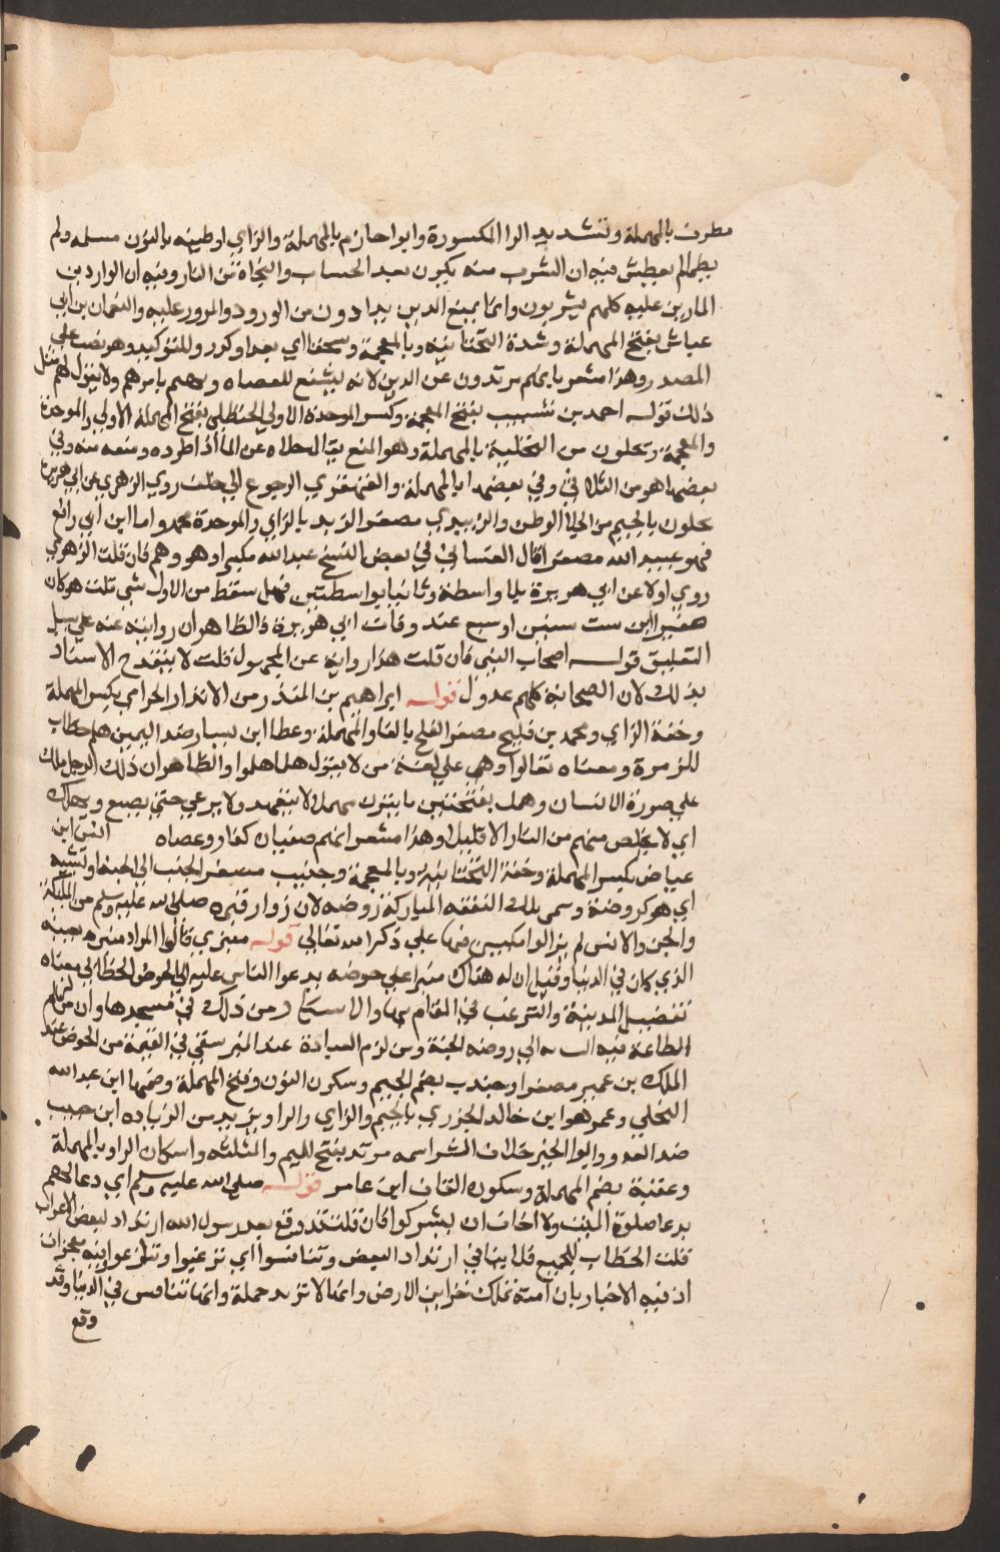 مطرف بالمهملة وتشديد الرا المكسورة وابوا حازم بالمهملة والزاي اوطينه بالنون مسلمه ولم
يظمالم يعطش فيه ان الشرب منه يكون بعد الحساب والنجاة من النار وفيه ان الواردين
المارين عليه كلهم يشربون وانما يمنع الذين يدادون من الورود والمرور عليه والنعمان بن ابي
عياش بفتح المهملة وشدة التحتانيه وبالمعجمة وسحقا اي بعدا وكرر وللتوكيد وهو نصب علي
المصدر وهذا مشعر بانهم مرتدون عن الدين لانه يشفع للعصاه ويهتم بامرهم ولا يقول لهم مثل
ذلك قوله احمد بن شبيب بفتح المعجمة وكسر الموحدة الاولي الحنظلي بفتح المهملة الاولي والموحدة
والمعجمة ويحلون من التحلية بالمهملة وهو المنع يقال حلاه عن الما اذا طرده ومنعه منه وفي
بعضها هو من الثلاثي وفي بعضها بالمهملة والقهقري الرجوع الي خلف روي الزهري عن ابي هريرة
يجلون بالجيم من الجلا الوطن والزبيدي مصغر الزبد بالزاي والموحدة محمد واما ابن ابي رافع
فهو عبيد الله مصغرا قال الغساني في بعض النسخ عبد الله مكبرا وهو وهم فان قلت الزهري
روي اولا عن ابي هريرة بلا واسطة وثانيا بواسطتين فهل سقط من الاول شي قلت هو كان
صغيرا ابن ست سنين او سبع عند وفات ابي هريرة فالظاهر ان روايته عنه علي سبيل
التعليق قوله اصحاب النبي فان قلت هذا رواية عن المجهول قلت لا ينقدح الاسناد
بذلك لان الصحابة كلهم عدول قوله ابراهيم بن المنذر من الانذار الحزامي بكسر المهملة
وخفة الزاي ومحمد بن فليح مصغر الفلح بالفا والمهملة وعطا ابن يسار ضد اليمين هلم خطاب
للزمرة ومعناه تعالوا وهي علي لغة من لا يقول هلما هلموا والظاهر ان ذلك الرجل ملك
علي صورة الانسان وهمل بفتحتين ما يترك مهملا لا يتعهد ولا يرعي حتي يضيع ويهلك
اي لا يخلص منهم من النار الا قليل وهذا مشعر انهم صنفان كفار وعصاه انس ابن
عياض بكسر المهملة وخفة التحتانية وبالمعجمة وجنيب مصغر الجنب الي الجنة او تشبيه
اي هو كروضة وسمي تلك البقعه المباركة روضه لان زوار قبره صلى الله عليه وسلم من الملائكة
والجن والانس لم يزالوا مكبين فيها علي ذكر الله تعالي قوله منبري قالوا المراد منبره بعينه
الذي كان في الدنيا وقيل ان له هناك منبرا علي حوضه يدعوا الناس عليه الي الحوض الخطابي معناه
تفضيل المدينة والترغيب في المقام بها والاستكثار من ذلك في مسجدها وان من لزم
الطاعة فيه الت به الي روضه الجنة ومن لزم العبادة عند المنبر سقي في القيمة من الحوض عبد
الملك بن عمير مصغرا وجندب بضم الجيم وسكون النون وفتح المهملة وضمها ابن عبد الله
البجلي وعمر هوابن خالد الجزري بالجيم والزاي والرا ويزيد من الزياده ابن حبيب
ضد العدو وابوا الخير خلاف الشر اسمه مرتد بفتح الميم والمثلثه واسكان الرا وبالمهملة
وعقبة بضم المهملة وسكون القاف ابن عامر قوله صلى الله عليه وسلم اي دعا لهم
بدعا صلوة الميت ولا اخاف ان يشركوا فان قلت قد وقع بعد رسول الله ارتداد لبعض الاعراب
قلت الخطاب للجميع فلا ينافي ارتداد البعض وتنافسوا اي ترغبوا وتنازعوا فيه معجزات
اذ فيه الاخبار بان امته تملك خزاين الارض وانها لا ترتد جملة وانها تتنافس في الدنيا وقد
وقع